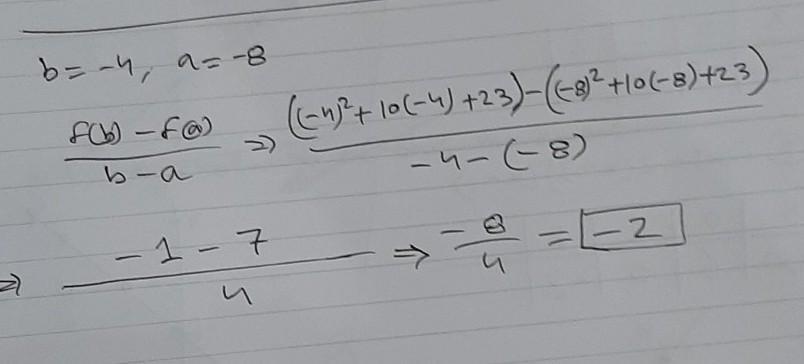 b = -4, a = -8
(f(b) - f(a))/(b - a) ⇒ (((-4)² + 10(-4) + 23) - ((-8)² + 10(-8) + 23))/(-4 - (-8))
⇒ (-1 - 7)/4 ⇒ -8/4 = -2